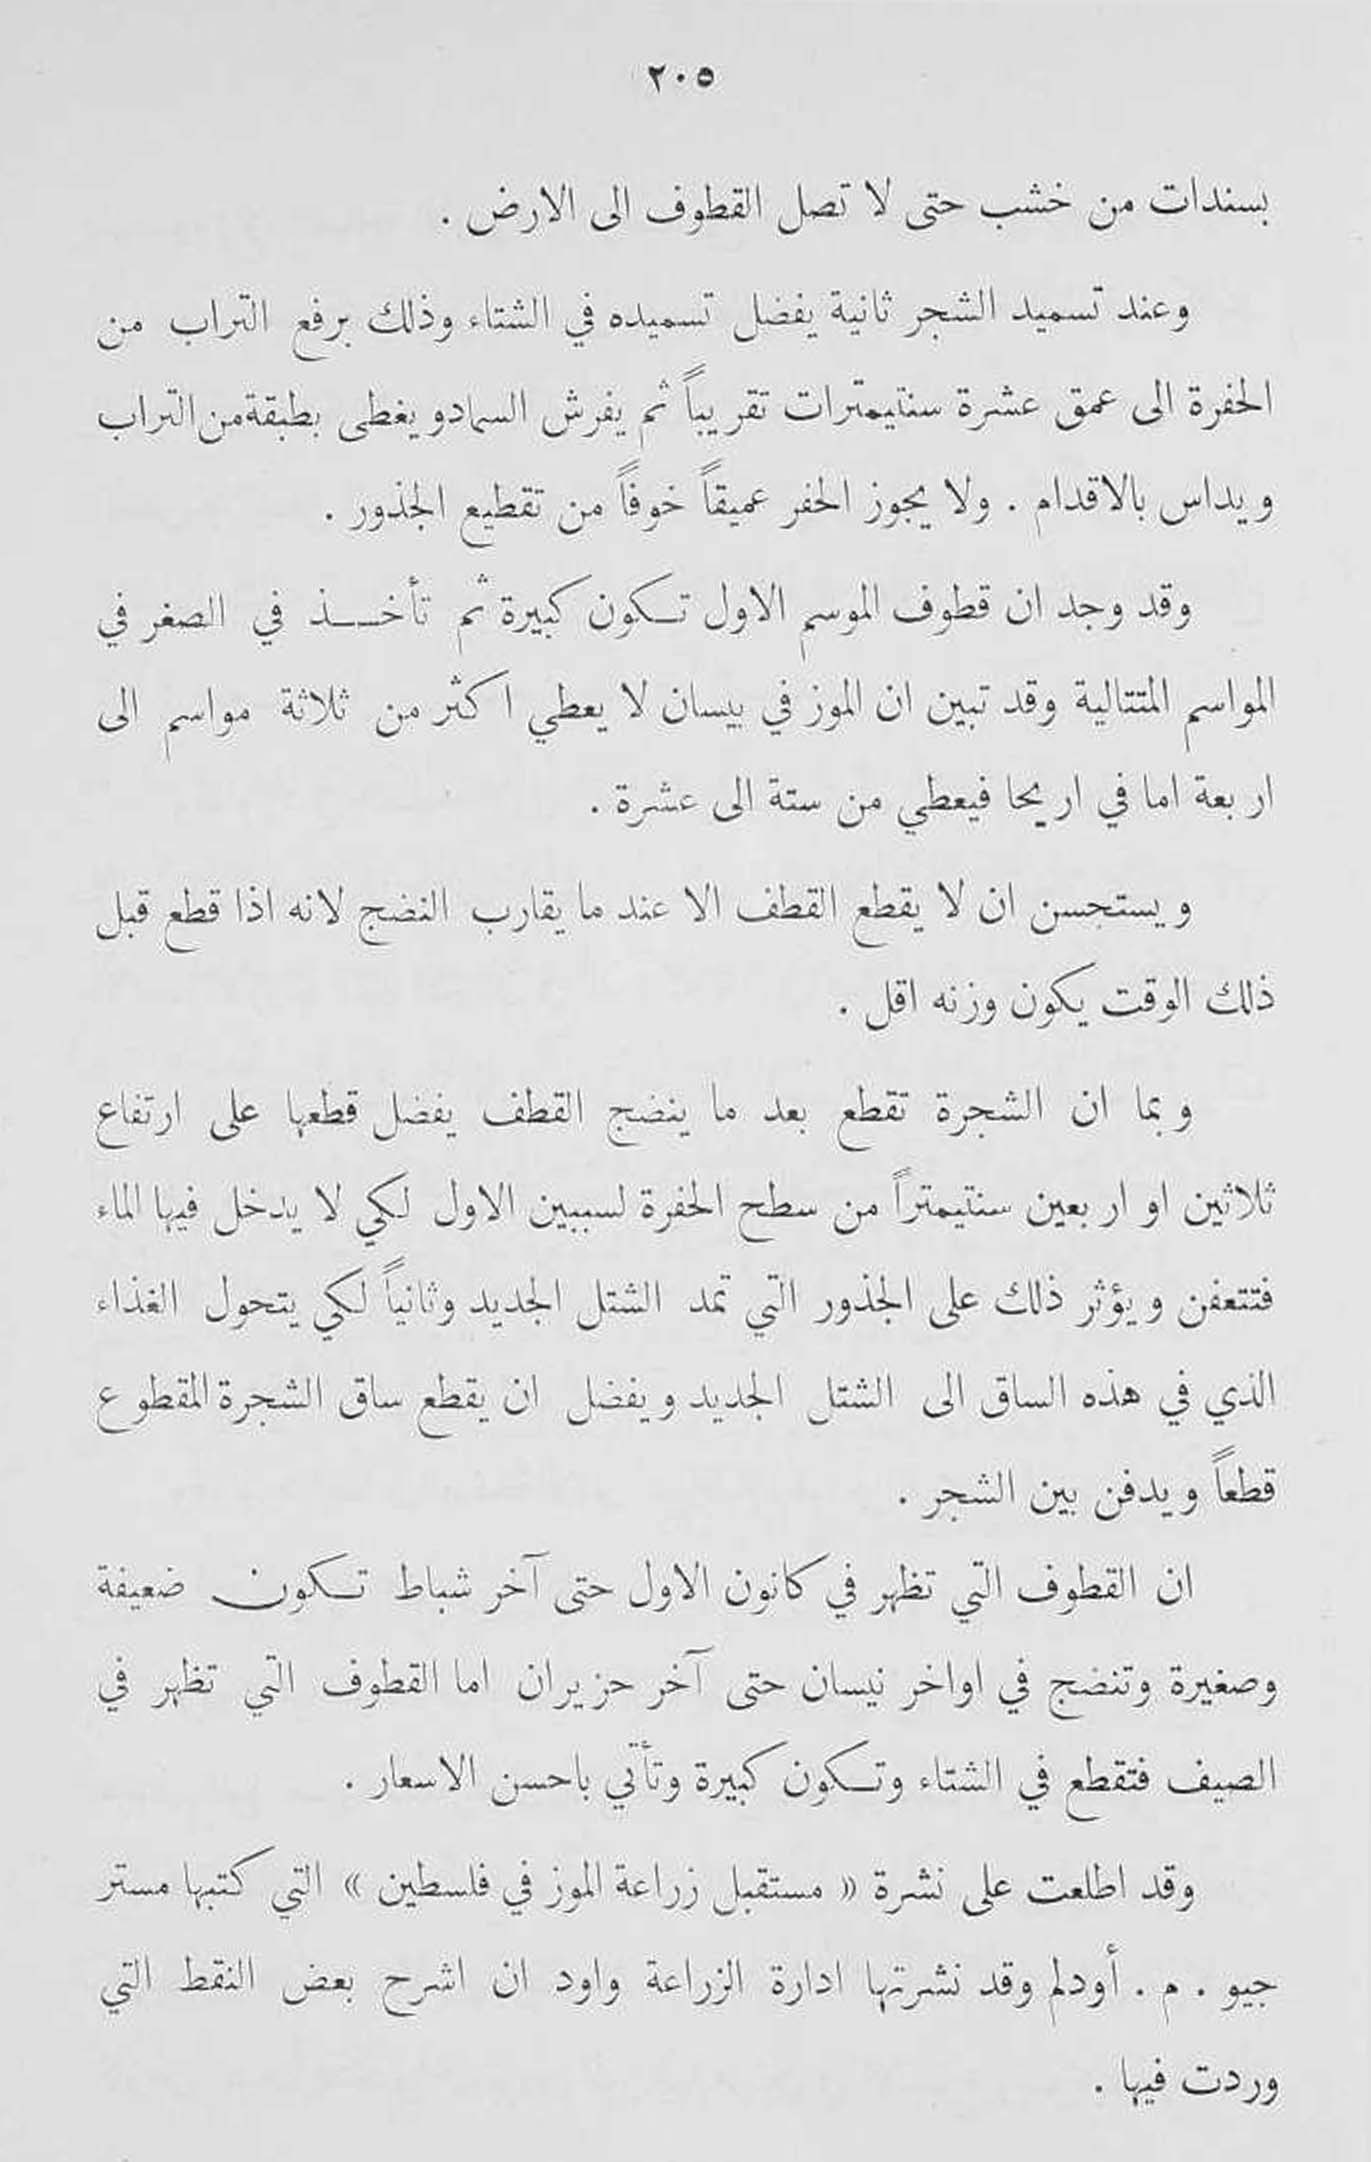 ٢٠٥
بسندات من خشب حتى لا تصل القطوف الى الارض .
وعند تسميد الشجر ثانية يفضل تسميده في الشتاء وذلك برفع التراب من
الحفرة الى عمق عشرة سنتيمترات تقريباً ثم يفرش السماد ويغطى بطبقة من التراب
ويداس بالاقدام . ولا يجوز الحفر عميقاً خوفاً من تقطيع الجذور .
وقد وجد ان قطوف الموسم الاول تكون كبيرة ثم تأخذ في الصغر في
المواسم المتتالية وقد تبين ان الموز في بيسان لا يعطي اكثر من ثلاثة مواسم الى
اربعة اما في اريحا فيعطي من ستة الى عشرة .
ويستحسن ان لا يقطع القطف الا عند ما يقارب النضج لانه اذا قطع قبل
ذلك الوقت يكون وزنه اقل .
وبما ان الشجرة تقطع بعد ما ينضج القطف يفضل قطعها على ارتفاع
ثلاثين او اربعين سنتيمتراً من سطح الحفرة لسببين الاول لكي لا يدخل فيها الماء
فتتعفن ويؤثر ذلك على الجذور التي تمد الشتل الجديد وثانياً لكي يتحول الغذاء
الذي في هذه الساق الى الشتل الجديد ويفضل ان يقطع ساق الشجرة المقطوع
قطعاً ويدفن بين الشجر .
ان القطوف التي تظهر في كانون الاول حتى آخر شباط تكون ضعيفة
وصغيرة وتنضج في اواخر نيسان حتى آخر حزيران اما القطوف التي تظهر في
الصيف فتقطع في الشتاء وتكون كبيرة وتأتي باحسن الاسعار .
وقد اطلعت على نشرة « مستقبل زراعة الموز في فلسطين » التي كتبها مستر
جيو . م . أودلم وقد نشرتها ادارة الزراعة واود ان اشرح بعض النقط التي
وردت فيها .